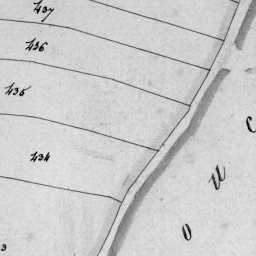 437
436
435
434
3
O U C